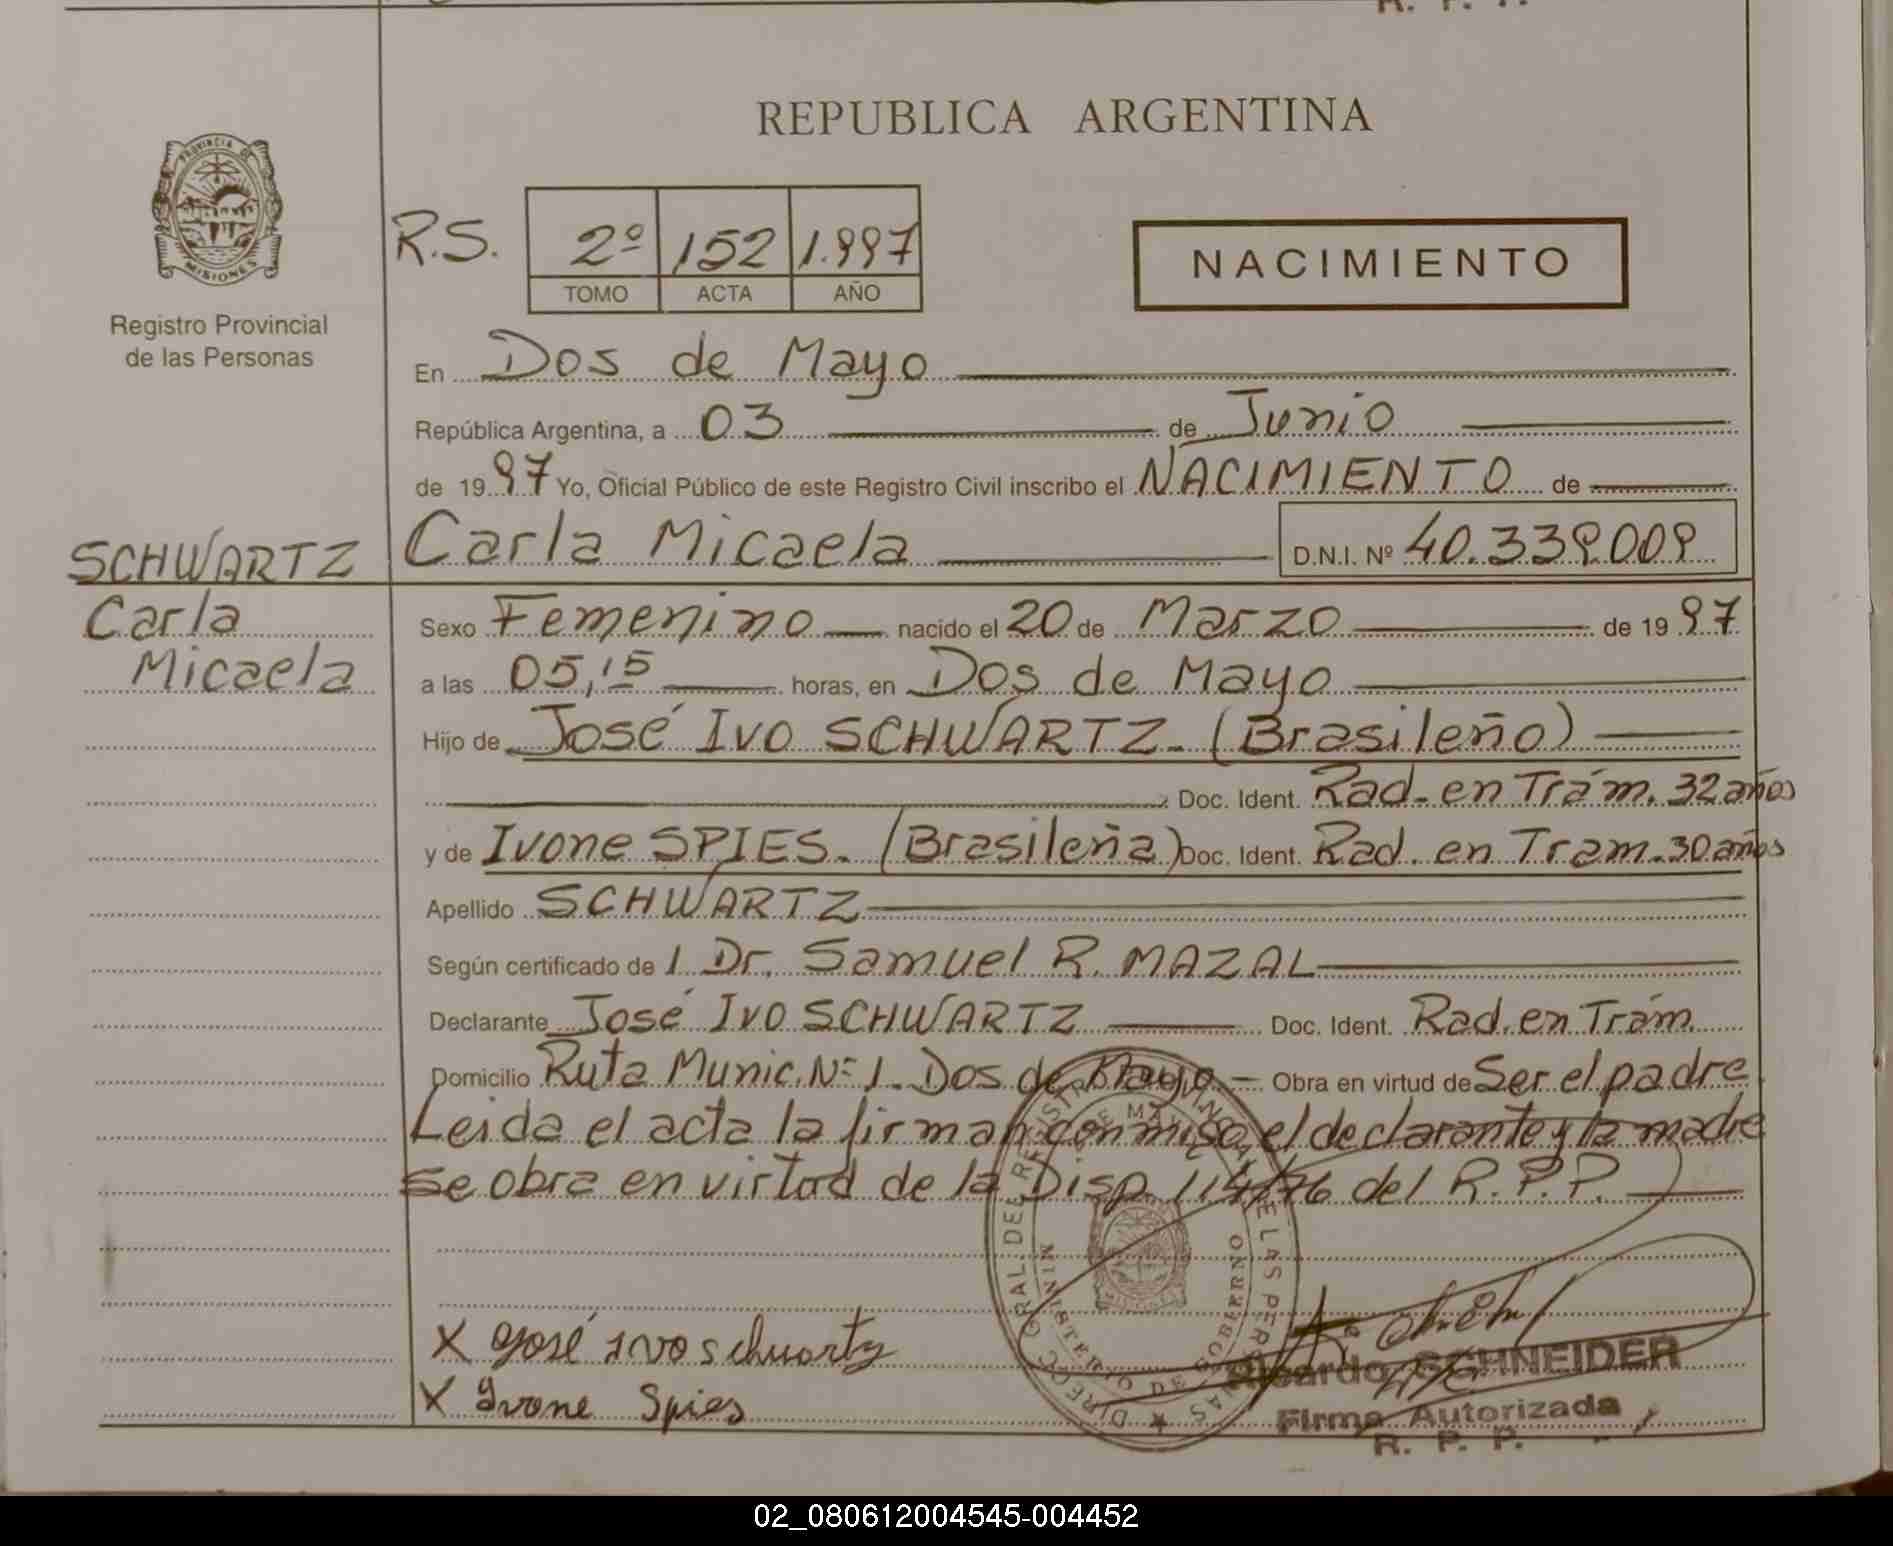 R. P. P.
REPUBLICA ARGENTINA
PROVINCIA DE
MISIONES
Registro Provincial
de las Personas
R.S. 2º 152 1.997
TOMO ACTA AÑO
NACIMIENTO
En Dos de Mayo
República Argentina, a 03 de Junio
de 19 97 Yo, Oficial Público de este Registro Civil inscribo el NACIMIENTO de
SCHWARTZ Carla Micaela D.N.I. Nº 40.339.009
Carla
Micaela
Sexo Femenino nacido el 20 de Marzo de 19 97
a las 05,15 horas, en Dos de Mayo
Hijo de José Ivo SCHWARTZ. (Brasileño)
Doc. Ident. Rad. en Trám. 32 años
y de Ivone SPIES. (Brasileña) Doc. Ident. Rad. en Tram. 30 años
Apellido SCHWARTZ
Según certificado de 1 Dr. Samuel R. MAZAL
Declarante José Ivo SCHWARTZ Doc. Ident. Rad. en Trám.
Domicilio Ruta Munic. Nº 1. Dos de Mayo.- Obra en virtud de Ser el padre
Leida el acta la firman conmigo el declarante y la madre
se obra en virtud de la Disp. 114/76 del R.P.P.
X José Ivo Schwartz
X Ivone Spies
DIRECC. GRAL. DEL REGISTRO PROVINCIAL DE LAS PERSONAS
MINISTERIO DE GOBIERNO
Ricardo SCHNEIDER
Firma Autorizada
R. P. P.
02_080612004545-004452